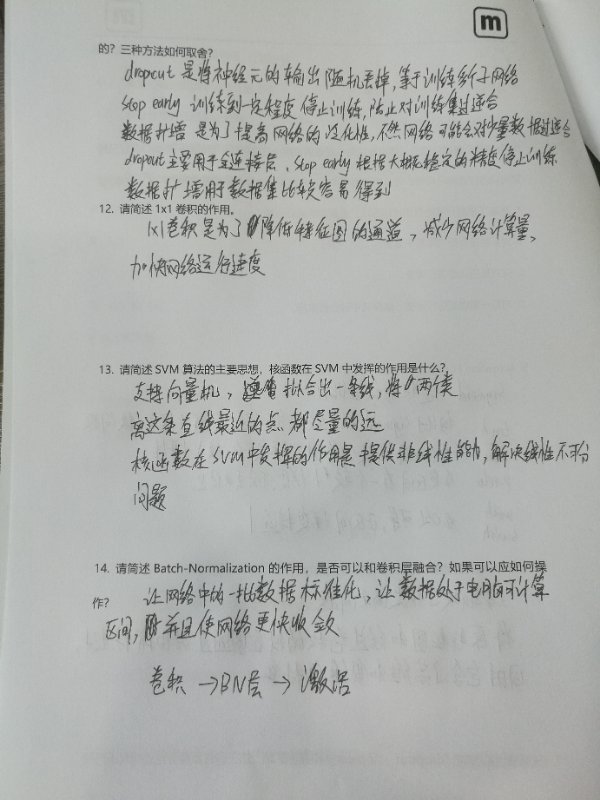 m
的？三种方法如何取舍？
dropout 是将神经元的输出随机丢掉，等于训练多个子网络
stop early 训练到一定程度停止训练，防止对训练集过适合
数据扩增 是为了提高网络的泛化性，不然网络可能会对少量数据过适合
dropout 主要用于全连接层，stop early 根据大概稳定的精度停止训练
数据扩增用于数据集比较容易得到
12. 请简述 1x1 卷积的作用。
1x1卷积是为了降低特征图的通道，减少网络计算量，
加快网络运行速度
13. 请简述 SVM 算法的主要思想，核函数在 SVM 中发挥的作用是什么？
支持向量机，拟合出一条线，将两个类
离这条直线最近的点都尽量的远
核函数在SVM中发挥的作用是提供非线性能力，解决线性不可分
问题
14. 请简述 Batch-Normalization 的作用，是否可以和卷积层融合？如果可以应如何操
作？ 让网络中的一批数据标准化，让数据处于电脑可计算
区间，并且使网络更快收敛
卷积 →BN层 → 激活